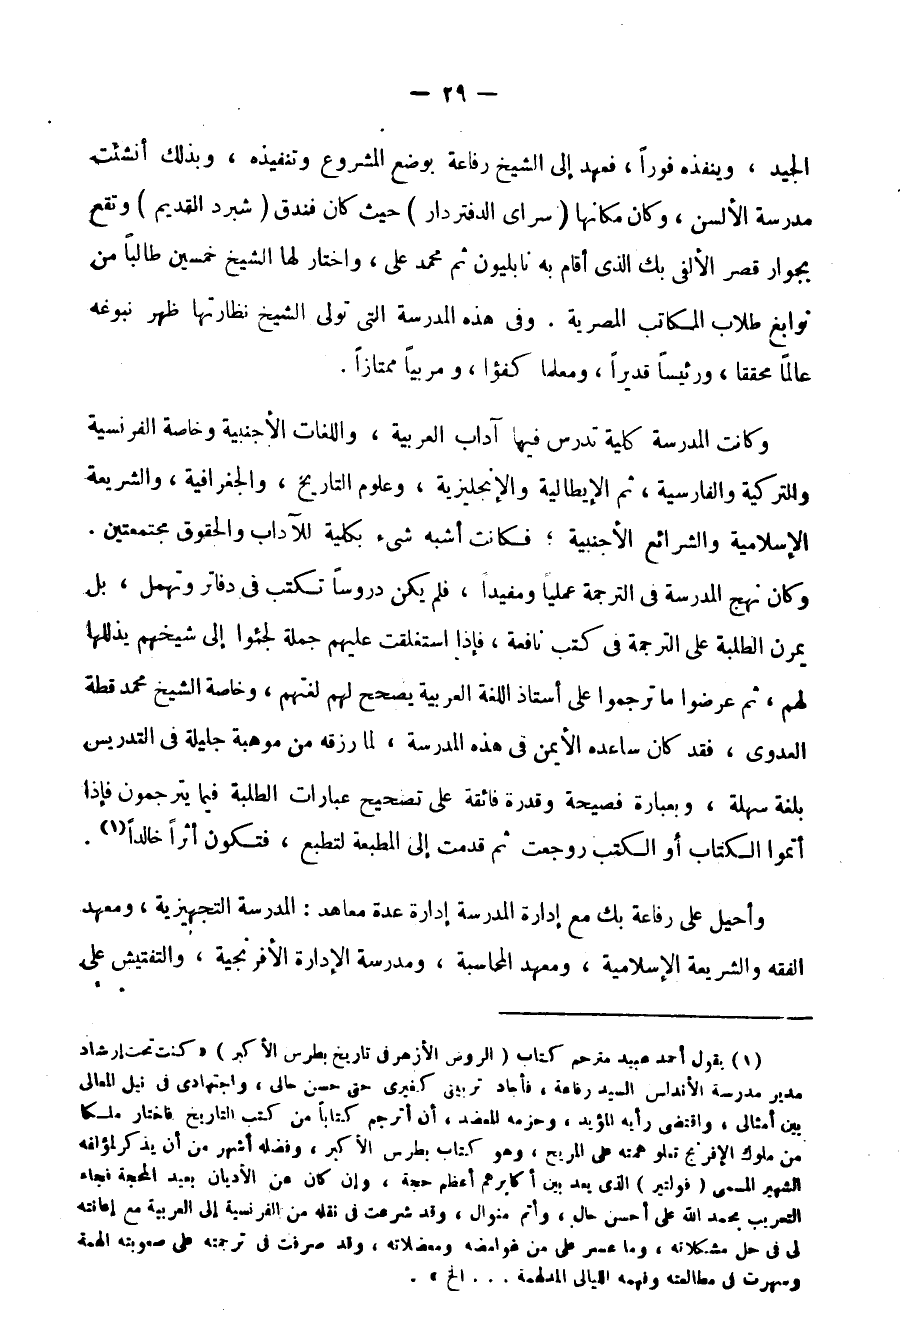 — ٢٩ —
الجيد ، وينفذه فوراً ، فعهد إلى الشيخ رفاعة بوضع المشروع وتنفيذه ، وبذلك أنشئت
مدرسة الألسن ، وكان مكانها ( سراى الدفتردار ) حيث كان فندق ( شبرد القديم ) وتقع
بجوار قصر الألفى بك الذى أقام به نابليون ثم محمد على ، واختار لها الشيخ خمسين طالباً من
نوابغ طلاب المكاتب المصرية . وفى هذه المدرسة التى تولى الشيخ نظارتها ظهر نبوغه
عالمًا محققا ، ورئيساً قديراً ، ومعلما كفؤا ، و مربياً ممتازاً .
وكانت المدرسة كلية تدرس فيها آداب العربية ، واللغات الأجنبية وخاصة الفرنسية
والتركية والفارسية ، ثم الإيطالية والإنجليزية ، وعلوم التاريخ ، والجغرافية ، والشريعة
الإسلامية والشرائع الأجنبية ؛ فكانت أشبه شىء بكلية للآداب والحقوق مجتمعتين .
وكان نهج المدرسة فى الترجمة عملياً ومفيداً ، فلم يكن دروساً تكتب فى دفاتر وتهمل ، بل
يمرن الطلبة على الترجمة فى كتب نافعة ، فإذا استغلقت عليهم جملة لجئوا إلى شيخهم يذللها
لهم ، ثم عرضوا ما ترجموا على أستاذ اللغة العربية يصحح لهم لغتهم ، وخاصة الشيخ محمد قطة
العدوى ، فقد كان ساعده الأيمن فى هذه المدرسة ، لما رزقه من موهبة جليلة فى التدريس
بلغة سهلة ، وبعبارة فصيحة وقدرة فائقة على تصحيح عبارات الطلبة فيما يترجمون فإذا
أتموا الكتاب أو الكتب روجعت ثم قدمت إلى المطبعة لتطبع ، فتكون أثراً خالداً(١) .
وأحيل على رفاعة بك مع إدارة المدرسة إدارة عدة معاهد : المدرسة التجهيزية ، ومعهد
الفقه والشريعة الإسلامية ، ومعهد المحاسبة ، ومدرسة الإدارة الأفرنجية ، والتفتيش على
(١) يقول أحمد عبيد مترجم كتاب ( الروض الأزهر فى تاريخ بطرس الأكبر ) « كنت تحت إرشاد
مدير مدرسة الأندلس السيد رفاعة ، فأجاد تربيتى كغيرى حتى حسن حالى ، واجتهادى فى نيل المعالى
بين أمثالى ، واقتضى رأيه المؤيد ، وحزمه المعضد ، أن أترجم كتاباً من كتب التاريخ فاختار ملكا
من ملوك الإفرنج تعلو همته على المريخ ، وهو كتاب بطرس الأكبر ، وفضله أشهر من أن يذكر لمؤلفه
الشهير المسمى ( فولتير ) الذى يعد بين أكابرهم أعظم حجة ، وإن كان عن الأديان بعيد المحجة فجاء
التعريب بحمد الله على أحسن حال ، وأتم منوال ، وقد شرعت فى نقله من الفرنسية إلى العربية مع إعانته
لى فى حل مشكلاته ، وما عسر على من غوامضه ومعضلاته ، وقد صرفت فى ترجمته على صعوبته الهمة
وسهرت فى مطالعته وفهمه الليالى المدلهمة . . . الخ » .